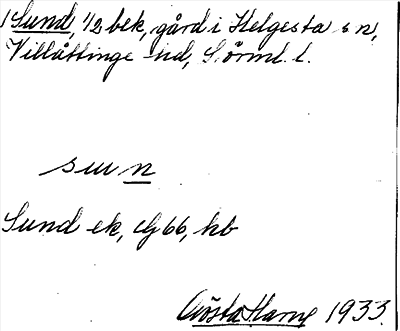 Sund, 1/2 bek, gård i Helgesta sn,
Villåttinge hd, Sörml. l.
sun
Sund ek, Gj 66, kb
Gösta Harne 1933